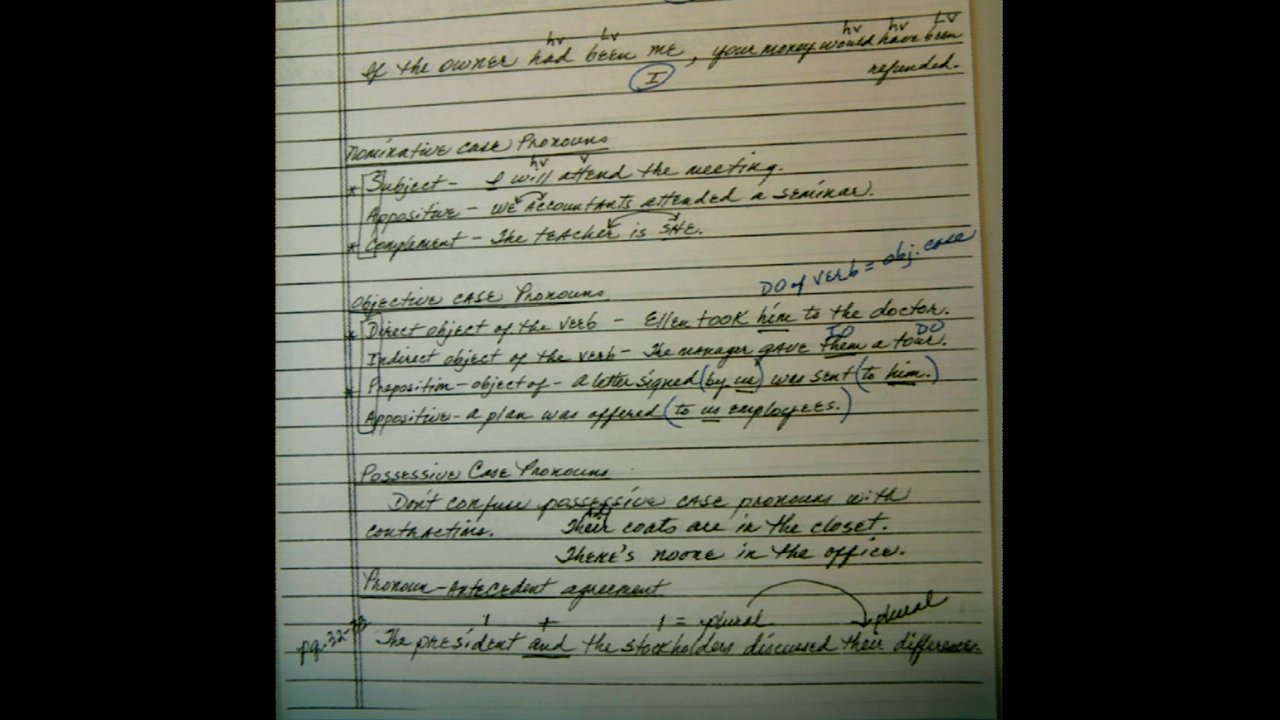 hv lv hv hv lv
If the owner had been me, your money would have been
I refunded.
Nominative Case Pronouns
hv v
* Subject - I will attend the meeting.
Appositive - We Accountants attended a seminar.
* Complement - The teacher is she.
DO of verb = obj. case
Objective Case Pronouns
* Direct object of the verb - Ellen took him to the doctor.
IO DO
Indirect object of the verb - The manager gave them a tour.
* Preposition - object of - a letter signed (by us) was sent (to him.)
Appositive - a plan was offered (to us employees.)
Possessive Case Pronouns
Don't confuse possessive case pronouns with
contractions. Their coats are in the closet.
There's noone in the office.
Pronoun - Antecedent agreement
1 + 1 = plural plural
pg. 32- The president and the stockholders discussed their differences.